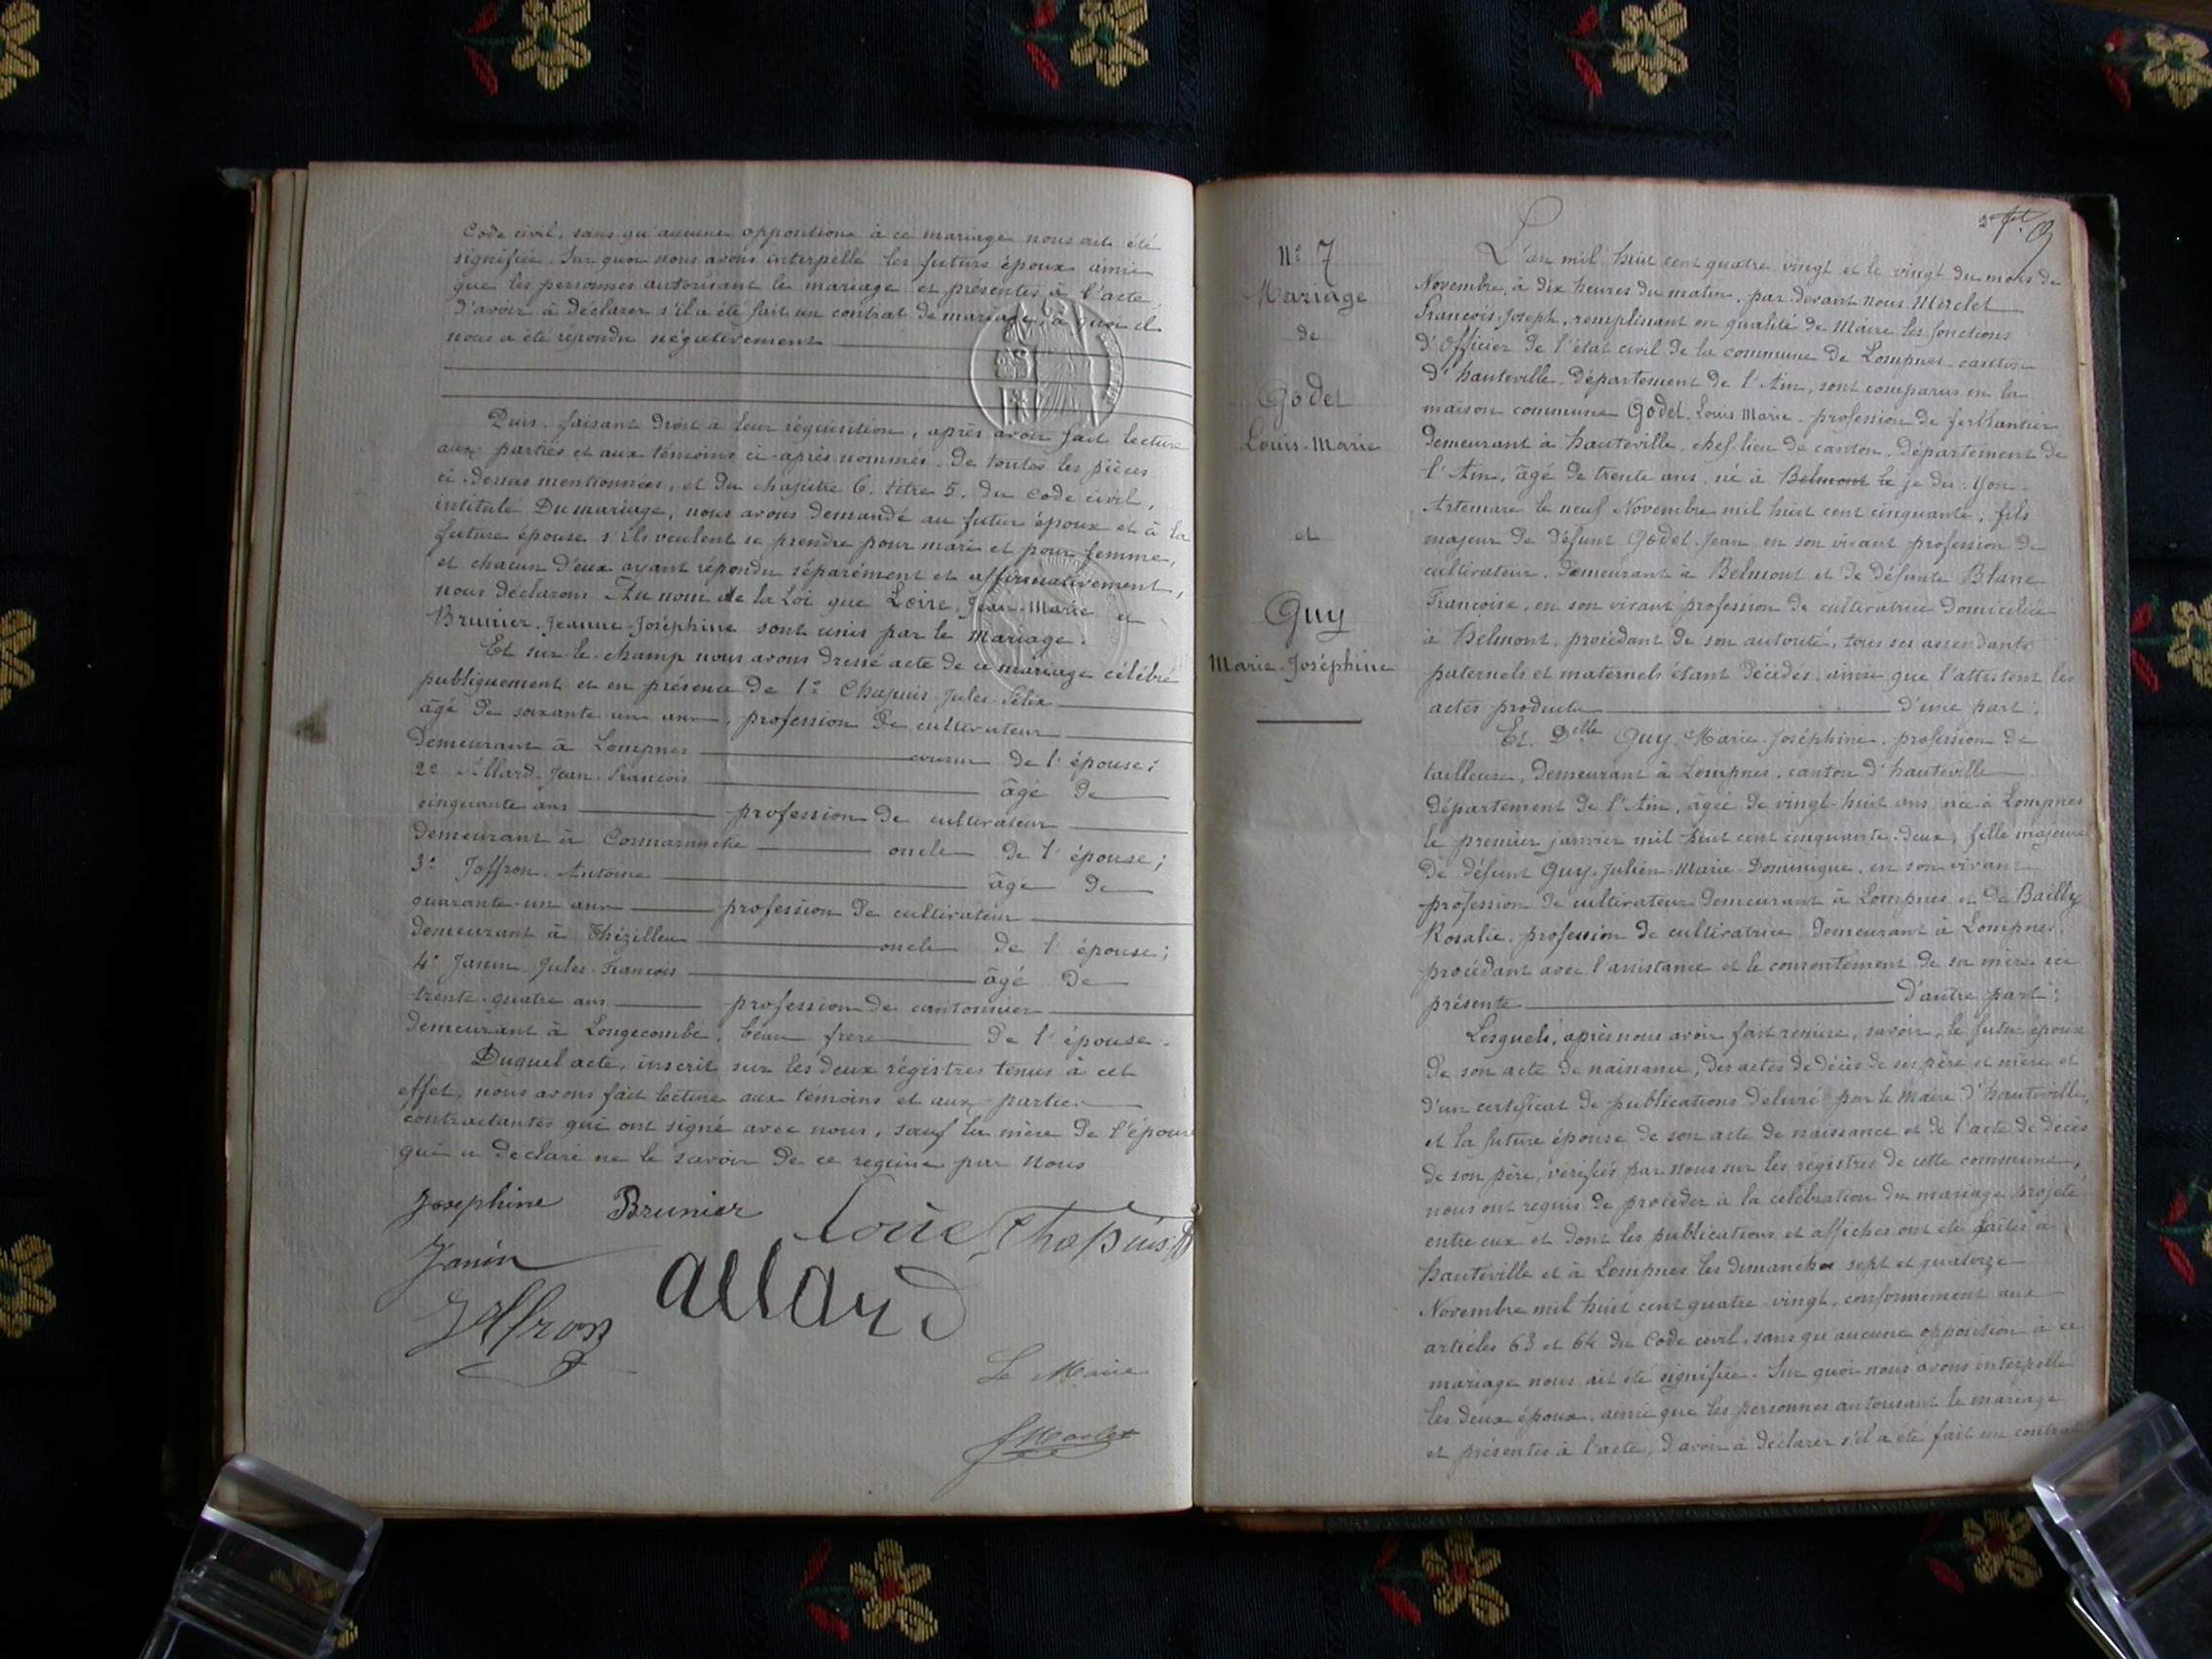 Code civil, sans qu'aucune opposition à ce mariage nous ait été
signifiée. Sur quoi nous avons interpellé les futurs époux ainsi
que les personnes autorisant le mariage et présentes à l'acte,
d'avoir à déclarer s'il a été fait un contrat de mariage, à quoi il
nous a été répondu négativement
Puis, faisant droit à leur réquisition, après avoir fait lecture
aux parties et aux témoins ci-après nommés, de toutes les pièces
ci-dessus mentionnées, et du chapitre 6. titre 5. du Code civil,
intitulé Du mariage, nous avons demandé au futur époux et à la
future épouse s'ils veulent se prendre pour mari et pour femme,
et chacun d'eux ayant répondu séparément et affirmativement,
nous déclarons Au nom de la Loi que Loire, Jean-Marie et
Brunier, Jeanne-Joséphine sont unis par le mariage.
Et sur-le-champ nous avons dressé acte de ce mariage célébré
publiquement et en présence de 1° Chapuis Jules Félix
âgé de soixante un ans, profession de cultivateur
demeurant à Lompnes cousin de l'épouse;
2° Allard Jean-François âgé de
cinquante ans profession de cultivateur
demeurant à Cormaranche oncle de l'épouse;
3° Joffron Antoine âgé de
quarante-un ans profession de cultivateur
demeurant à Thézillieu oncle de l'épouse;
4° Janin Jules-François âgé de
trente-quatre ans profession de cantonnier
demeurant à Longecombe, beau frère de l'épouse.
Duquel acte, inscrit sur les deux régistres tenus à cet
effet, nous avons fait lecture aux témoins et aux parties
contractantes qui ont signé avec nous, sauf la mère de l'épouse
qui a déclaré ne le savoir de ce requise par nous
Josephine Brunier Loire Chapuis
Janin allard
Joffron
Le Maire
N° 7
Mariage
de
Godet
Louis-Marie
et
Guy
Marie-Joséphine
L'an mil huit cent quatre vingt et le vingt du mois de
Novembre, à dix heures du matin, par devant nous Merclet
François-Joseph, remplissant en qualité de Maire les fonctions
d'Officier de l'état civil de la commune de Lompnes canton
d'hauteville, département de l'Ain, sont comparus en la
maison commune Godet Louis Marie, profession de ferblantier
demeurant à hauteville, chef-lieu de canton, département de
l'Ain, âgé de trente ans, né à Belmont le je dis: Yon
Artemare le neuf Novembre mil huit cent cinquante, fils
majeur de défunt Godet Jean en son vivant profession de
cultivateur, demeurant à Belmont et de défunte Blanc
Françoise, en son vivant profession de cultivatrice domiciliée
à Belmont, procédant de son autorité, tous ses ascendants
paternels et maternels étant décédés, ainsi que l'attestent les
actes produits d'une part;
Et Delle Guy Marie Joséphine, profession de
tailleuse, demeurant à Lompnes, canton d'hauteville
département de l'Ain, âgée de vingt-huit ans née à Lompnes
le premier janvier mil huit cent cinquante-deux, fille majeure
de défunt Guy Julien-Marie-Dominique, en son vivant
profession de cultivateur demeurant à Lompnes et de Bailly
Rosalie, profession de cultivatrice demeurant à Lompnes,
procédant avec l'assistance et le consentement de sa mère ici
présente d'autre part;
Lesquels, après nous avoir fait remise, savoir, le futur époux
de son acte de naissance, des actes de décès de ses père et mère et
d'un certificat de publications délivré par le Maire d'hauteville,
et la future épouse de son acte de naissance et de l'acte de décès
de son père, vérifiés par nous sur les régistres de cette commune,
nous ont requis de procéder à la célébration du mariage projeté
entre eux et dont les publications et affiches ont été faites à
hauteville et à Lompnes les dimanche sept et quatorze
Novembre mil huit cent quatre-vingt, conformément aux
articles 63 et 64 du Code civil, sans qu'aucune opposition à ce
mariage nous ait été signifiée. Sur quoi nous avons interpellé
les deux époux, ainsi que les personnes autorisant le mariage
et présentes à l'acte, d'avoir à déclarer s'il a été fait un contrat